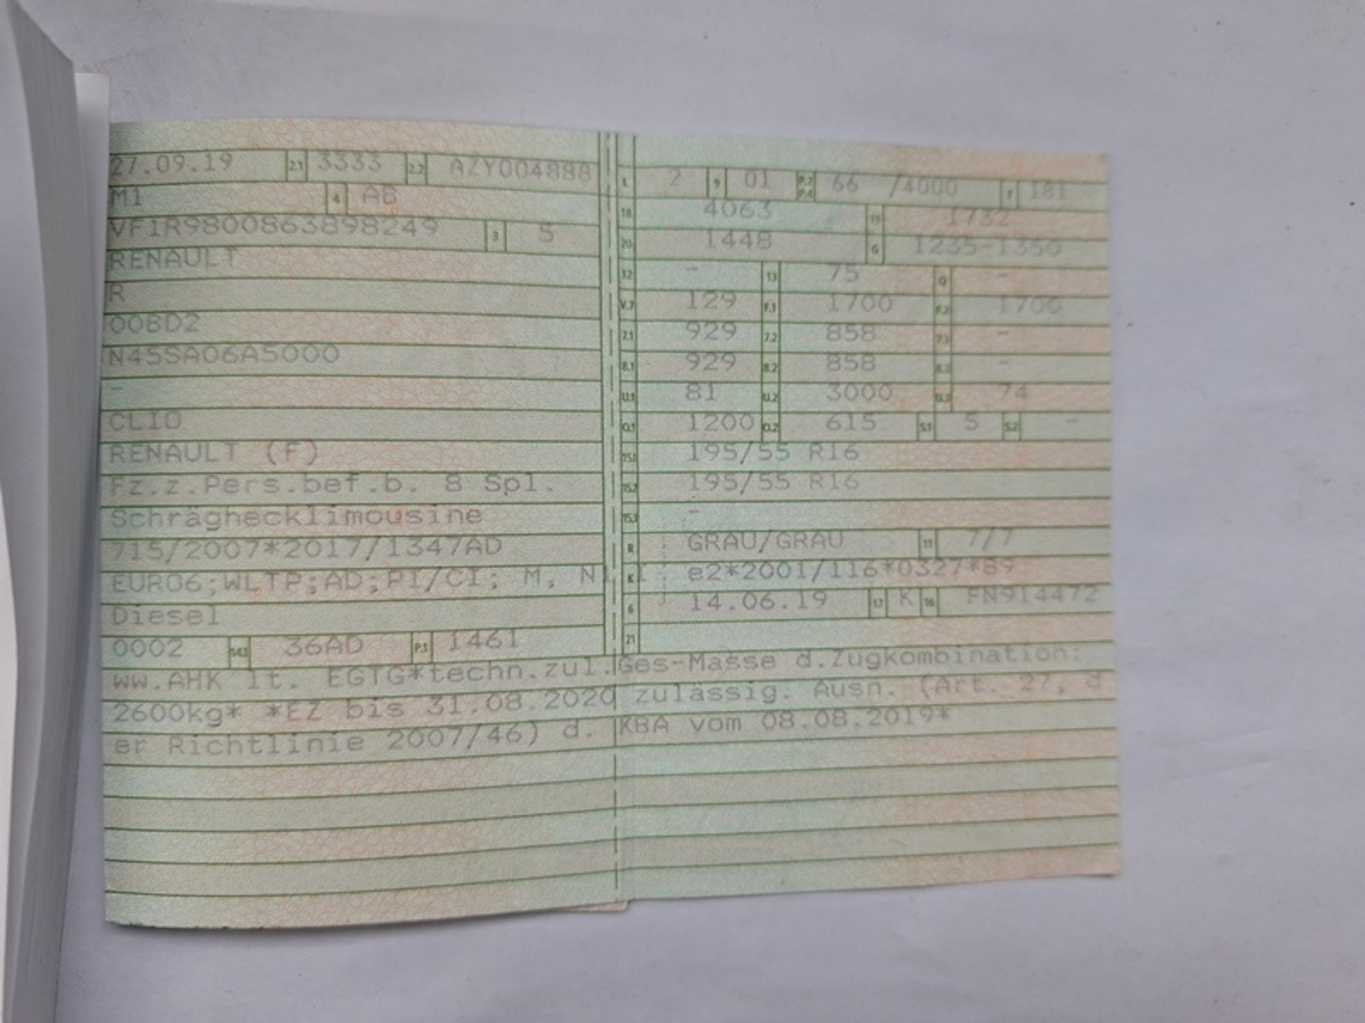 27.09.19 2.1 3333 2.2 AZY004888
M1 4 AB
VF1R9800863898249 3 5
RENAULT
R
00BD2
N45SA06A5000
-
CLIO
RENAULT (F)
Fz.z.Pers.bef.b. 8 Spl.
Schräghecklimousine
715/2007*2017/1347AD
EURO6;WLTP;AD;PI/CI; M, N1 I
Diesel
0002 14.1 36AD P.1 1461
L 2 9 01 P.2 P.4 66 /4000 T 181
18 4063 19 1732
20 1448 G 1235-1350
12 - 13 75 Q -
V.7 129 F.1 1700 F.2 1700
7.1 929 7.2 858 7.3 -
8.1 929 8.2 858 8.3 -
U.1 81 U.2 3000 U.3 74
O.1 1200 O.2 615 S.1 5 S.2 -
15.1 195/55 R16
15.2 195/55 R16
15.3 -
R GRAU/GRAU 11 7/7
K e2*2001/116*0327*89
6 14.06.19 17 K 16 FN914472
21
ww.AHK lt. EGTG*techn.zul.Ges-Masse d.Zugkombination:
2600kg* *EZ bis 31.08.2020 zulässig. Ausn. (Art. 27, d
er Richtlinie 2007/46) d. KBA vom 08.08.2019*